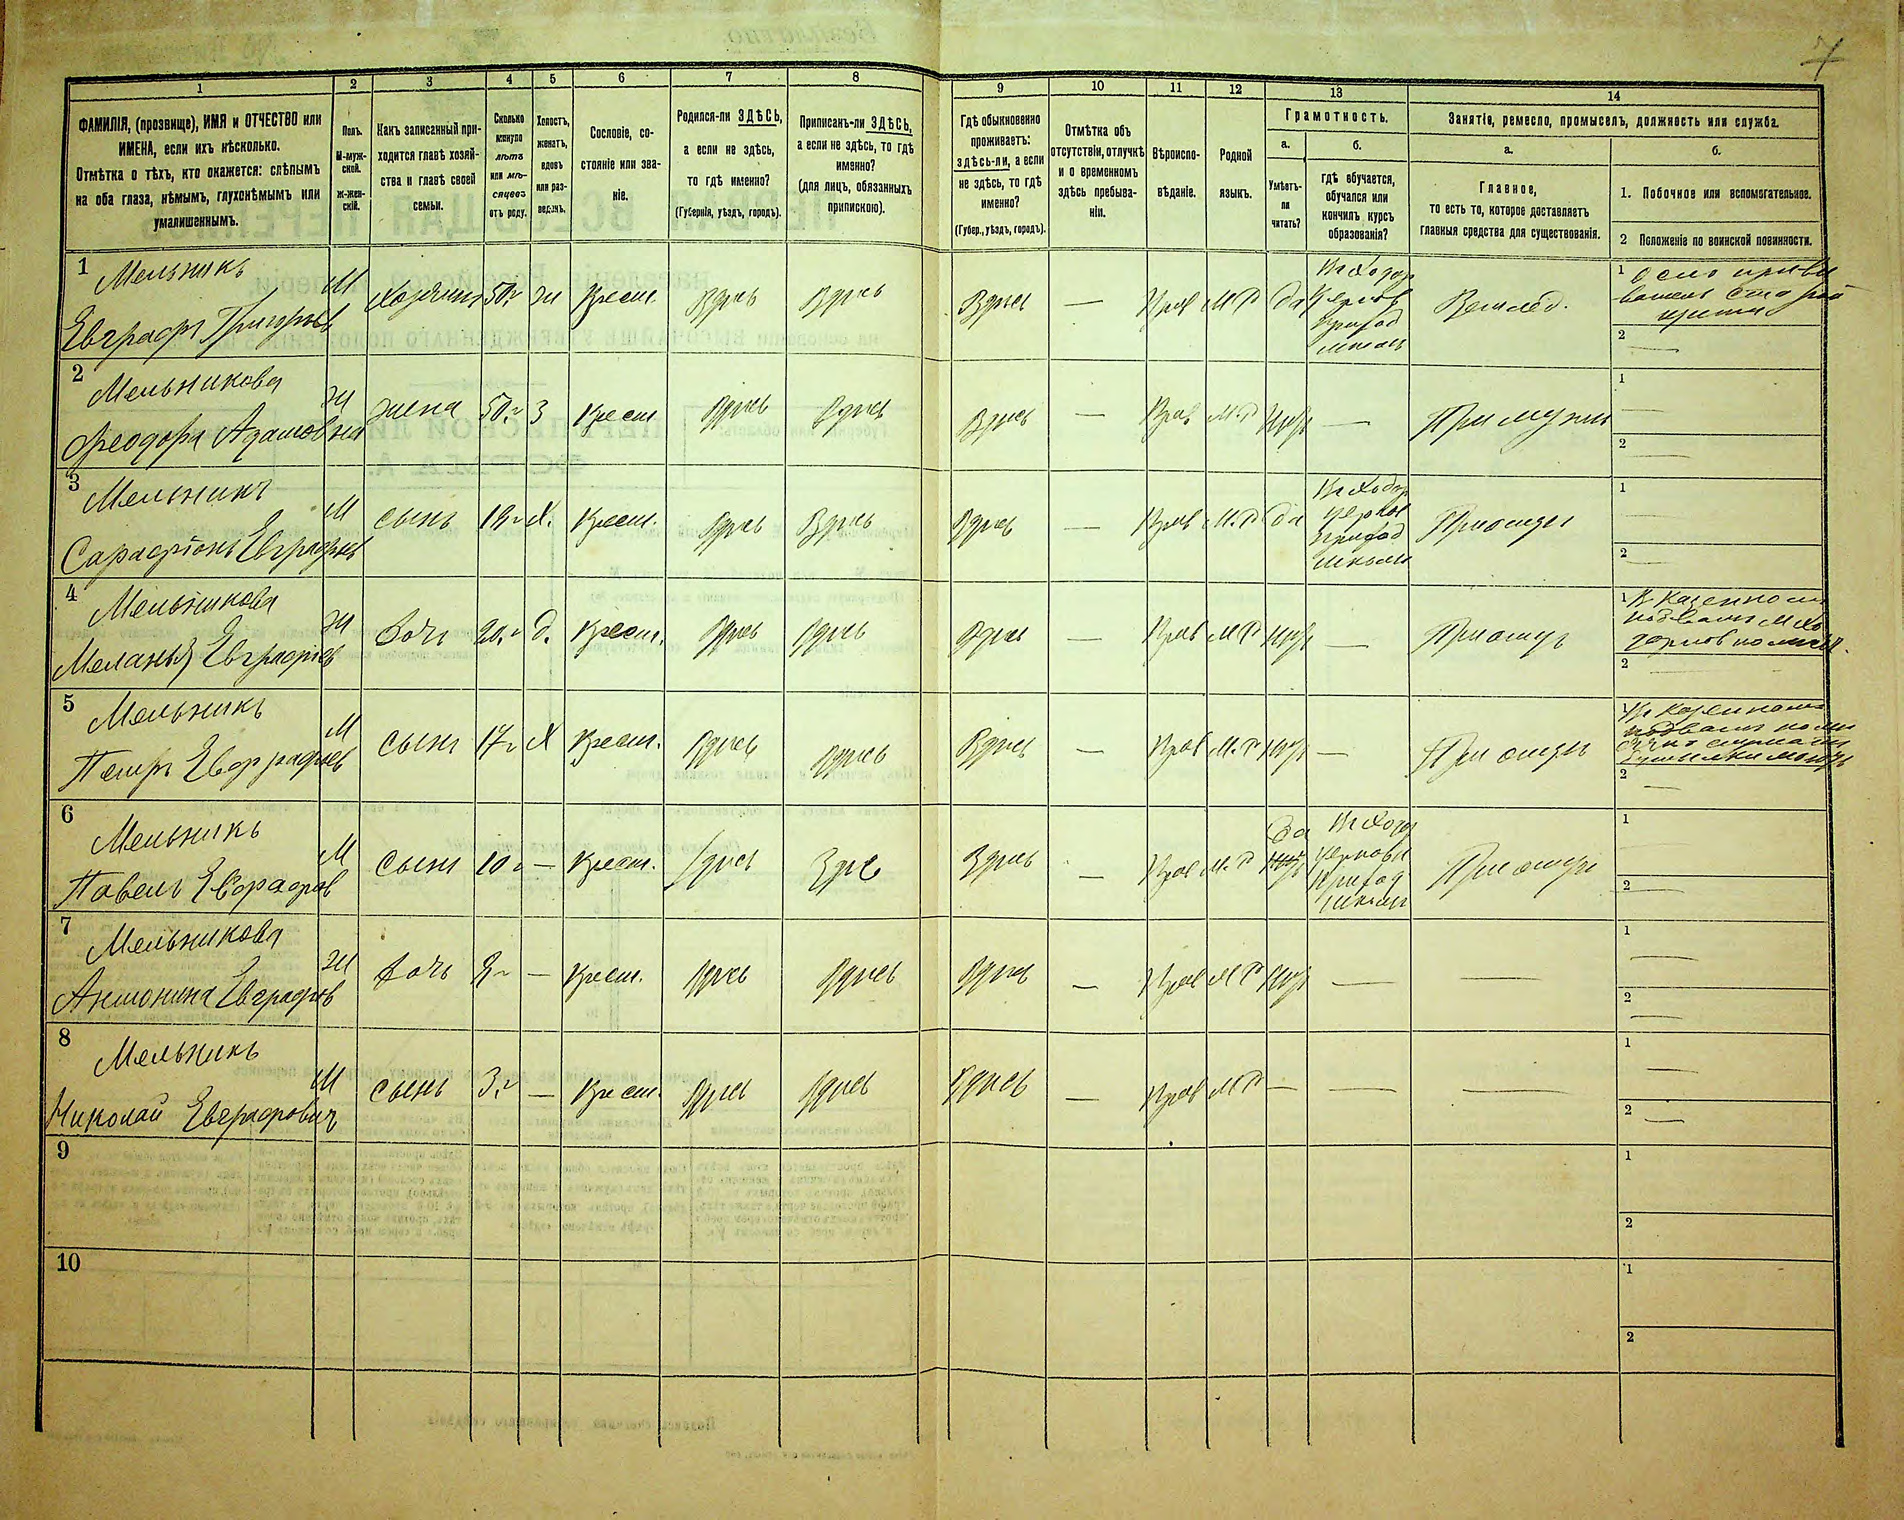 7
1 2 3 4 5 6 7 8 9 10 11 12 13 14
ФАМИЛІЯ, (прозвище), ИМЯ и ОТЧЕСТВО или
ИМЕНА, если ихъ нѣсколько.
Отмѣтка о тѣхъ, кто окажется: слѣпымъ
на оба глаза, нѣмымъ, глухонѣмымъ или
умалишеннымъ.
Полъ.
М-муж-
ской.
Ж-жен-
скій.
Какъ записанный при-
ходится главѣ хозяй-
ства и главѣ своей
семьи.
Сколько
минуло
лѣтъ
или мѣ-
сяцевъ
отъ роду.
Холостъ,
женатъ,
вдовъ
или раз-
веденъ.
Сословіе, со-
стояніе или зва-
ніе.
Родился-ли ЗДѢСЬ,
а если не здѣсь,
то гдѣ именно?
(Губернія, уѣздъ, городъ).
Приписанъ-ли ЗДѢСЬ,
а если не здѣсь, то гдѣ
именно?
(для лицъ, обязанныхъ
припискою).
Гдѣ обыкновенно
проживаетъ:
здѣсь-ли, а если
не здѣсь, то гдѣ
именно?
(Губер., уѣздъ, городъ).
Отмѣтка объ
отсутствіи, отлучкѣ
и о временномъ
здѣсь пребыва-
ніи.
Вѣроиспо-
вѣданіе.
Родной
языкъ.
Грамотность.
а.
Умѣетъ-
ли
читать?
б.
гдѣ обучается,
обучался или
кончилъ курсъ
образованія?
Занятіе, ремесло, промыселъ, должность или служба.
а.
Главное,
то есть то, которое доставляетъ
главныя средства для существованія.
б.
1. Побочное или вспомогательное.
2 Положеніе по воинской повинности.
1 Мельникъ
Евграфъ Григорьев М хозяинъ 50 г ж Крест. Здѣсь Здѣсь Здѣсь — Прав М.Р да Землед.
школѣ
1
2 —
2 Мельникова
Феодора Адамовна ж жена 50 г З Крест Здѣсь Здѣсь Здѣсь — Прав М.Р нѣтъ — При мужѣ
1 —
2 —
3 Мельникъ
Сарафіонъ Евграфов М сынъ г Х. Крест. Здѣсь Здѣсь Здѣсь — Прав М.Р да При отцѣ
Приход
школѣ
1 —
2 —
4 Мельникова
Меланья Евграфов ж дочь 20 г д. Крест. Здѣсь Здѣсь Здѣсь — Прав М Р нѣтъ — При отцѣ
1
2 —
5 Мельникъ
Петръ Евграфов М сынъ 17 г Х Крест. Здѣсь Здѣсь Здѣсь — Прав М.Р нѣтъ — При отцѣ
1
2 —
6 Мельникъ
Павелъ Евграфов М сынъ 10 г — Крест. Здѣсь Здѣс Здѣсь — Прав М.Р да При отцѣ
Приход
школѣ
1 —
2 —
7 Мельникова
Антонина Евграфов ж дочь г — Крест. Здѣсь Здѣсь Здѣсь — Прав М Р нѣтъ — —
1 —
2 —
8 Мельникъ
Николай Евграфович М сынъ 3 г — Крест. Здѣсь Здѣсь Здѣсь — Прав М.Р — — —
1 —
2 —
9
1
2
10
1
2